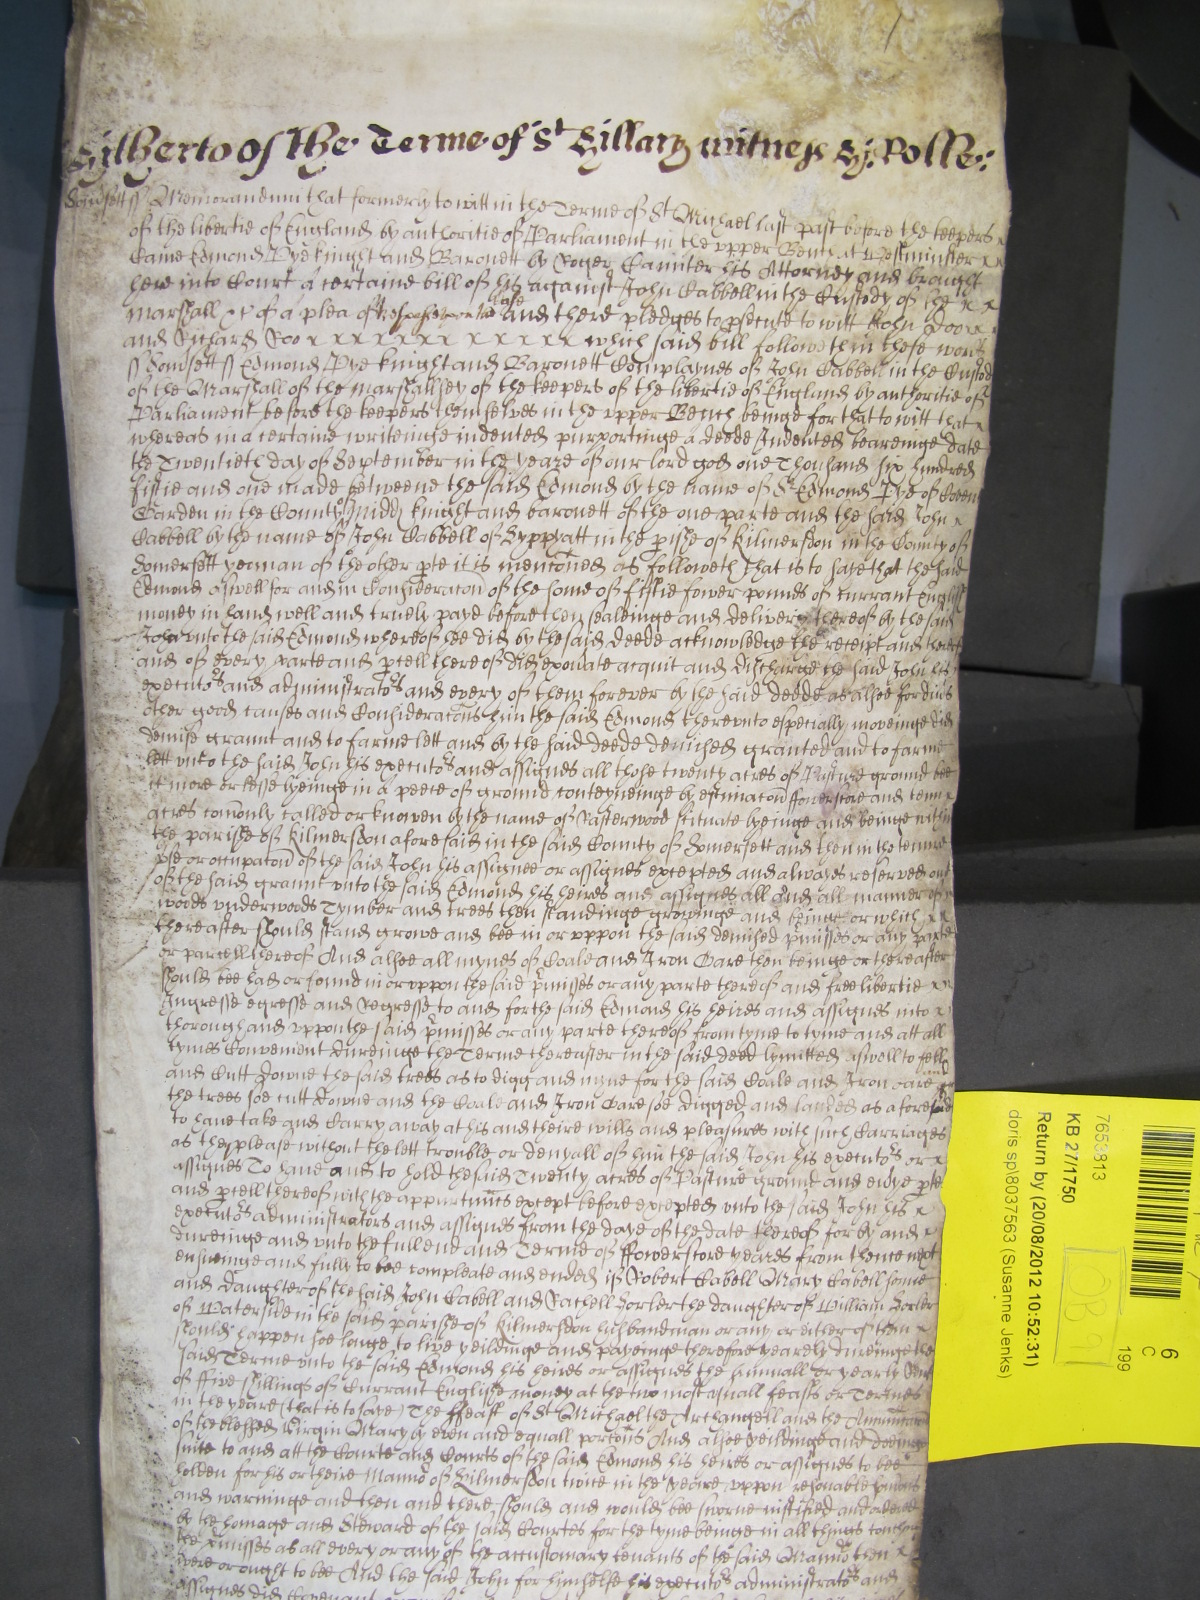 Hitherto of the Terme of St Hillary witness H: Rolle:
Somsett ss Memorandum that formerly to witt in the Terme of St Michael last past before the keepers
of the libertie of England by authoritie of Parliament in the vpper Bench at Westminster x x
Came Edmond Pye knight and Baronett by Roger his Attorney and brought
here into Court a certaine bill of his against John Cabbell in the Custody of the x x
Marshall &c of a plea of and there pledges to psecute to witt John Doo x x
and Richard Roo x x x x x x x x x x x which said bill followeth in these words
ss Somsett ss Edmond Pye knight and Baronett Complaynes of John Cabbell in the Custody
of the Marshall of the marshallsey of the keepers of the libertie of England by authoritie of
Parliament before the keepers themselves in the vpper Bench beinge for that to witt that
whereas in a certaine writeinge indented purportinge a deede Indented beareinge date
the Twentieth day of September in the yeare of our lord god one Thousand six hundred
fiftie and one made betweene the said Edmond by the name of Sr Edmond Pye of Coven
Garden in the County of Midd knight and baronett of the one parte and the said John x
Cabbell by the name of John Cabbell of Zyppyatt in the pishe of Kilmersdon in the County of
Somersett yeoman of the other pte it is mentioned as followeth That is to saye that the said
Edmond aswell for and in Consideracon of the some of fiftie fower pounds of currant English
money in hand well and truely payd before then sealeinge and delivery thereof by the said
John vnto the said Edmond whereof hee did by the said deede acknowledge the receipt and thereof
and of every parte and pcell thereof did exonate acquit and discharge the said John his
executors and administrators and every of them forever by the said deede as alsoe for divs
other good causes and Consideracons him the said Edmond therevnto especially moveinge did
demise graunt and to farme lett and by the said deede demised granted and to farme
lett vnto the said John his executors and assignes all those twenty acres of Pasture ground bee
it more or lesse lyeinge in a peece of ground conteyneinge by estimacon fowerscore and tenn
acres comonly called or knowen by the name of Rasterwood scituate lyeinge and beinge within
the parishe of Kilmersdon aforesaid in the said County of Somersett and then in the tenure
vse or occupacon of the said John his assignee or assignes excepted and alwaies reserved out
of the said graunt vnto the said Edmond his heires and assignes all and all manner of x
woods vnderwoods Tymber and trees then standinge groweinge and beinge or which x x
thereafter should stand growe and bee in or vppon the said demised pmisses or any parte
or parcell thereof And alsoe all mynes of Coale and Iron Oare then beinge or thereafter
should bee had or found in or vppon the said pmisses or any parte thereof and free libertie x x
Ingresse egresse and Regresse to and for the said Edmond his heires and assignes into x
thorough and vppon the said pmisses or any parte thereof from tyme to tyme and att all
tymes Convenient dureinge the Terme thereafter in the said deed lymitted aswell to fell
and Cutt downe the said trees as to digg and myne for the said Coale and Iron Oare and
the trees soe cutt downe and the Coale and Iron Oare soe digged and landed as aforesaid
to have take and Carry away at his and theire wills and pleasures with such Carriages
as they please without the lett trouble or denyall of him the said John his executors or x
assignes To have and to hold the said Twenty acres of Pasture ground and evye pte
and pcell thereof with the appurtnncs except before excepted vnto the said John his x
executors administrators and assignes from the daye of the date thereof for by and x
dureinge and vnto the full end and Terme of fowerscore yeares from thence next
ensueinge and fully to bee compleate and ended if Robert Cabell Mary Cabell sonne
and daughter of the said John Cabell and Rachell Sorler the daughter of William Sorler
of Waterside in the said parishe of Kilmersdon husbandman or any or either of them x
should happen soe longe to live yeildinge and payeinge therefore yearely dureinge the
said Terme vnto the said Edmond his heires or assignes the annuall or yearly Rent
of five shillings of Currant Englishe money at the two most vsuall feasts or Termes
in the yeare (that is to saye) The ffeast of St Michael the Archangell and the Annunciacon
of the blessed Virgin Mary by even and equall portons And alsoe yeildinge and doeinge
suite to and att the Courte and Courts of the said Edmond his heires or assignes to bee
holden for his or theire Mannor of Kilmersdon twice in the yeare vppon resonable somons
and warninge and then and there should and would bee sworne iustified and ordered
by the homage and Steward of the said Courtes for the tyme beinge in all things touching
the pmisses as all every or any of the accustomary tenants of the said Mannor then x
were or ought to bee And the said John for himselfe his executors administrators and
assignes did Covenant
6
C
199
7653813
KB 27/1750
Return by (20/08/2012 10:52:31)
doris sp\8037563 (Susanne Jenks)